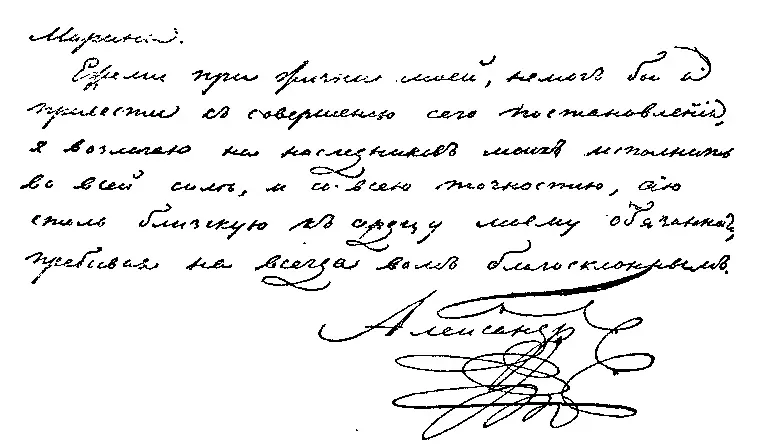 Марiи.
Ежели при жизни моей, немогъ бы я
привести къ совершенію сего постановленія,
я возлагаю на наследниковъ моихъ исполнить
во всей силѣ, и со всею точностию, сію
столь близкую къ сердцу моему обязанность,
пребывая на всегда вамъ благосклоннымъ.
Александръ